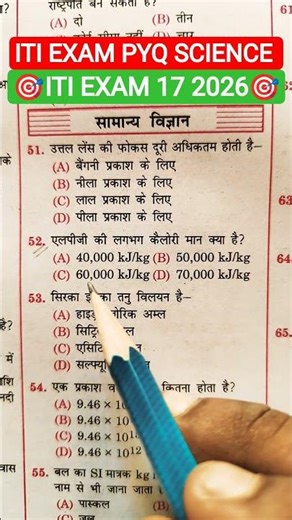 राष्ट्रपति बन सकता है?
(A) दो (B) तीन
ITI EXAM PYQ SCIENCE
🎯ITI EXAM 17 2026🎯
सामान्य विज्ञान
51. उत्तल लेंस की फोकस दूरी अधिकतम होती है–
(A) बैंगनी प्रकाश के लिए
(B) नीला प्रकाश के लिए
(C) लाल प्रकाश के लिए
(D) पीला प्रकाश के लिए
52. एलपीजी की लगभग कैलोरी मान क्या है?
(A) 40,000 kJ/kg (B) 50,000 kJ/kg
(C) 60,000 kJ/kg (D) 70,000 kJ/kg
53. सिरका का तनु विलयन है–
(A)
(B)
(C)
(D)
54. एक प्रकाश कितना होता है?
(A) 9.46 × 10
(B) 9.46 × 10
(C) 9.46 × 10
(D) 9.46 × 10¹²
55. बल का SI मात्रक kg
नाम से भी जाना जाता
(A) पास्कल